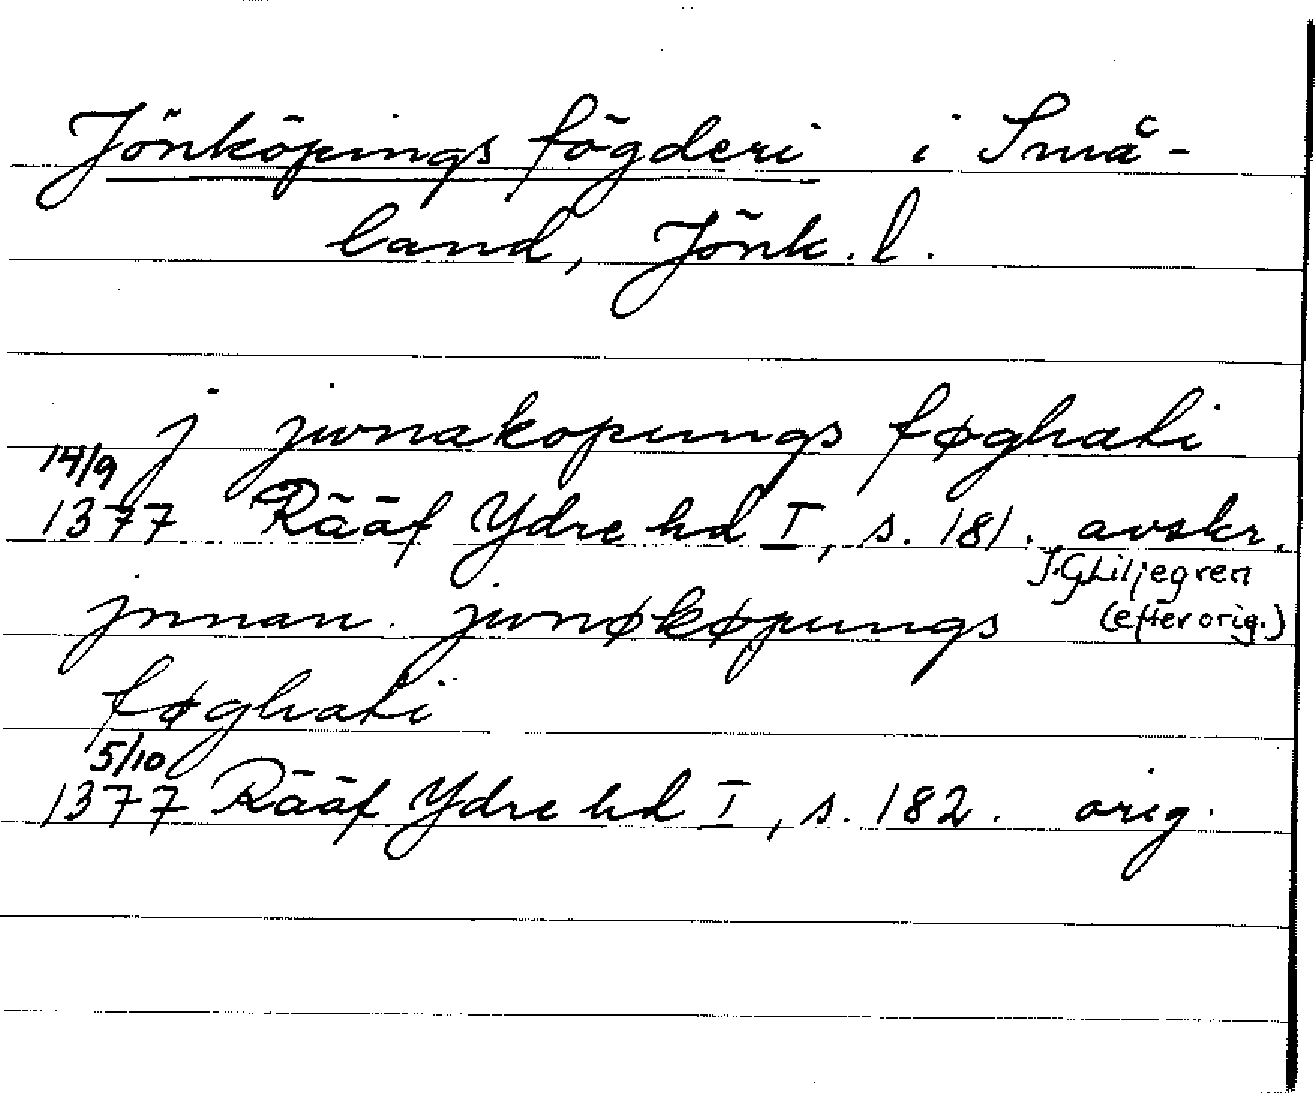 Jönköpings fögderi i Små-
land, Jönk. l.
j jwnakopungs føghati
14/9
1377 Rääf Ydre hd I, s. 181. avskr.
J.G.Liljegren
(efter orig.)
jnnan. jwnøkøpungs
føghati
5/10
1377 Rääf Ydre hd I, s. 182. orig.